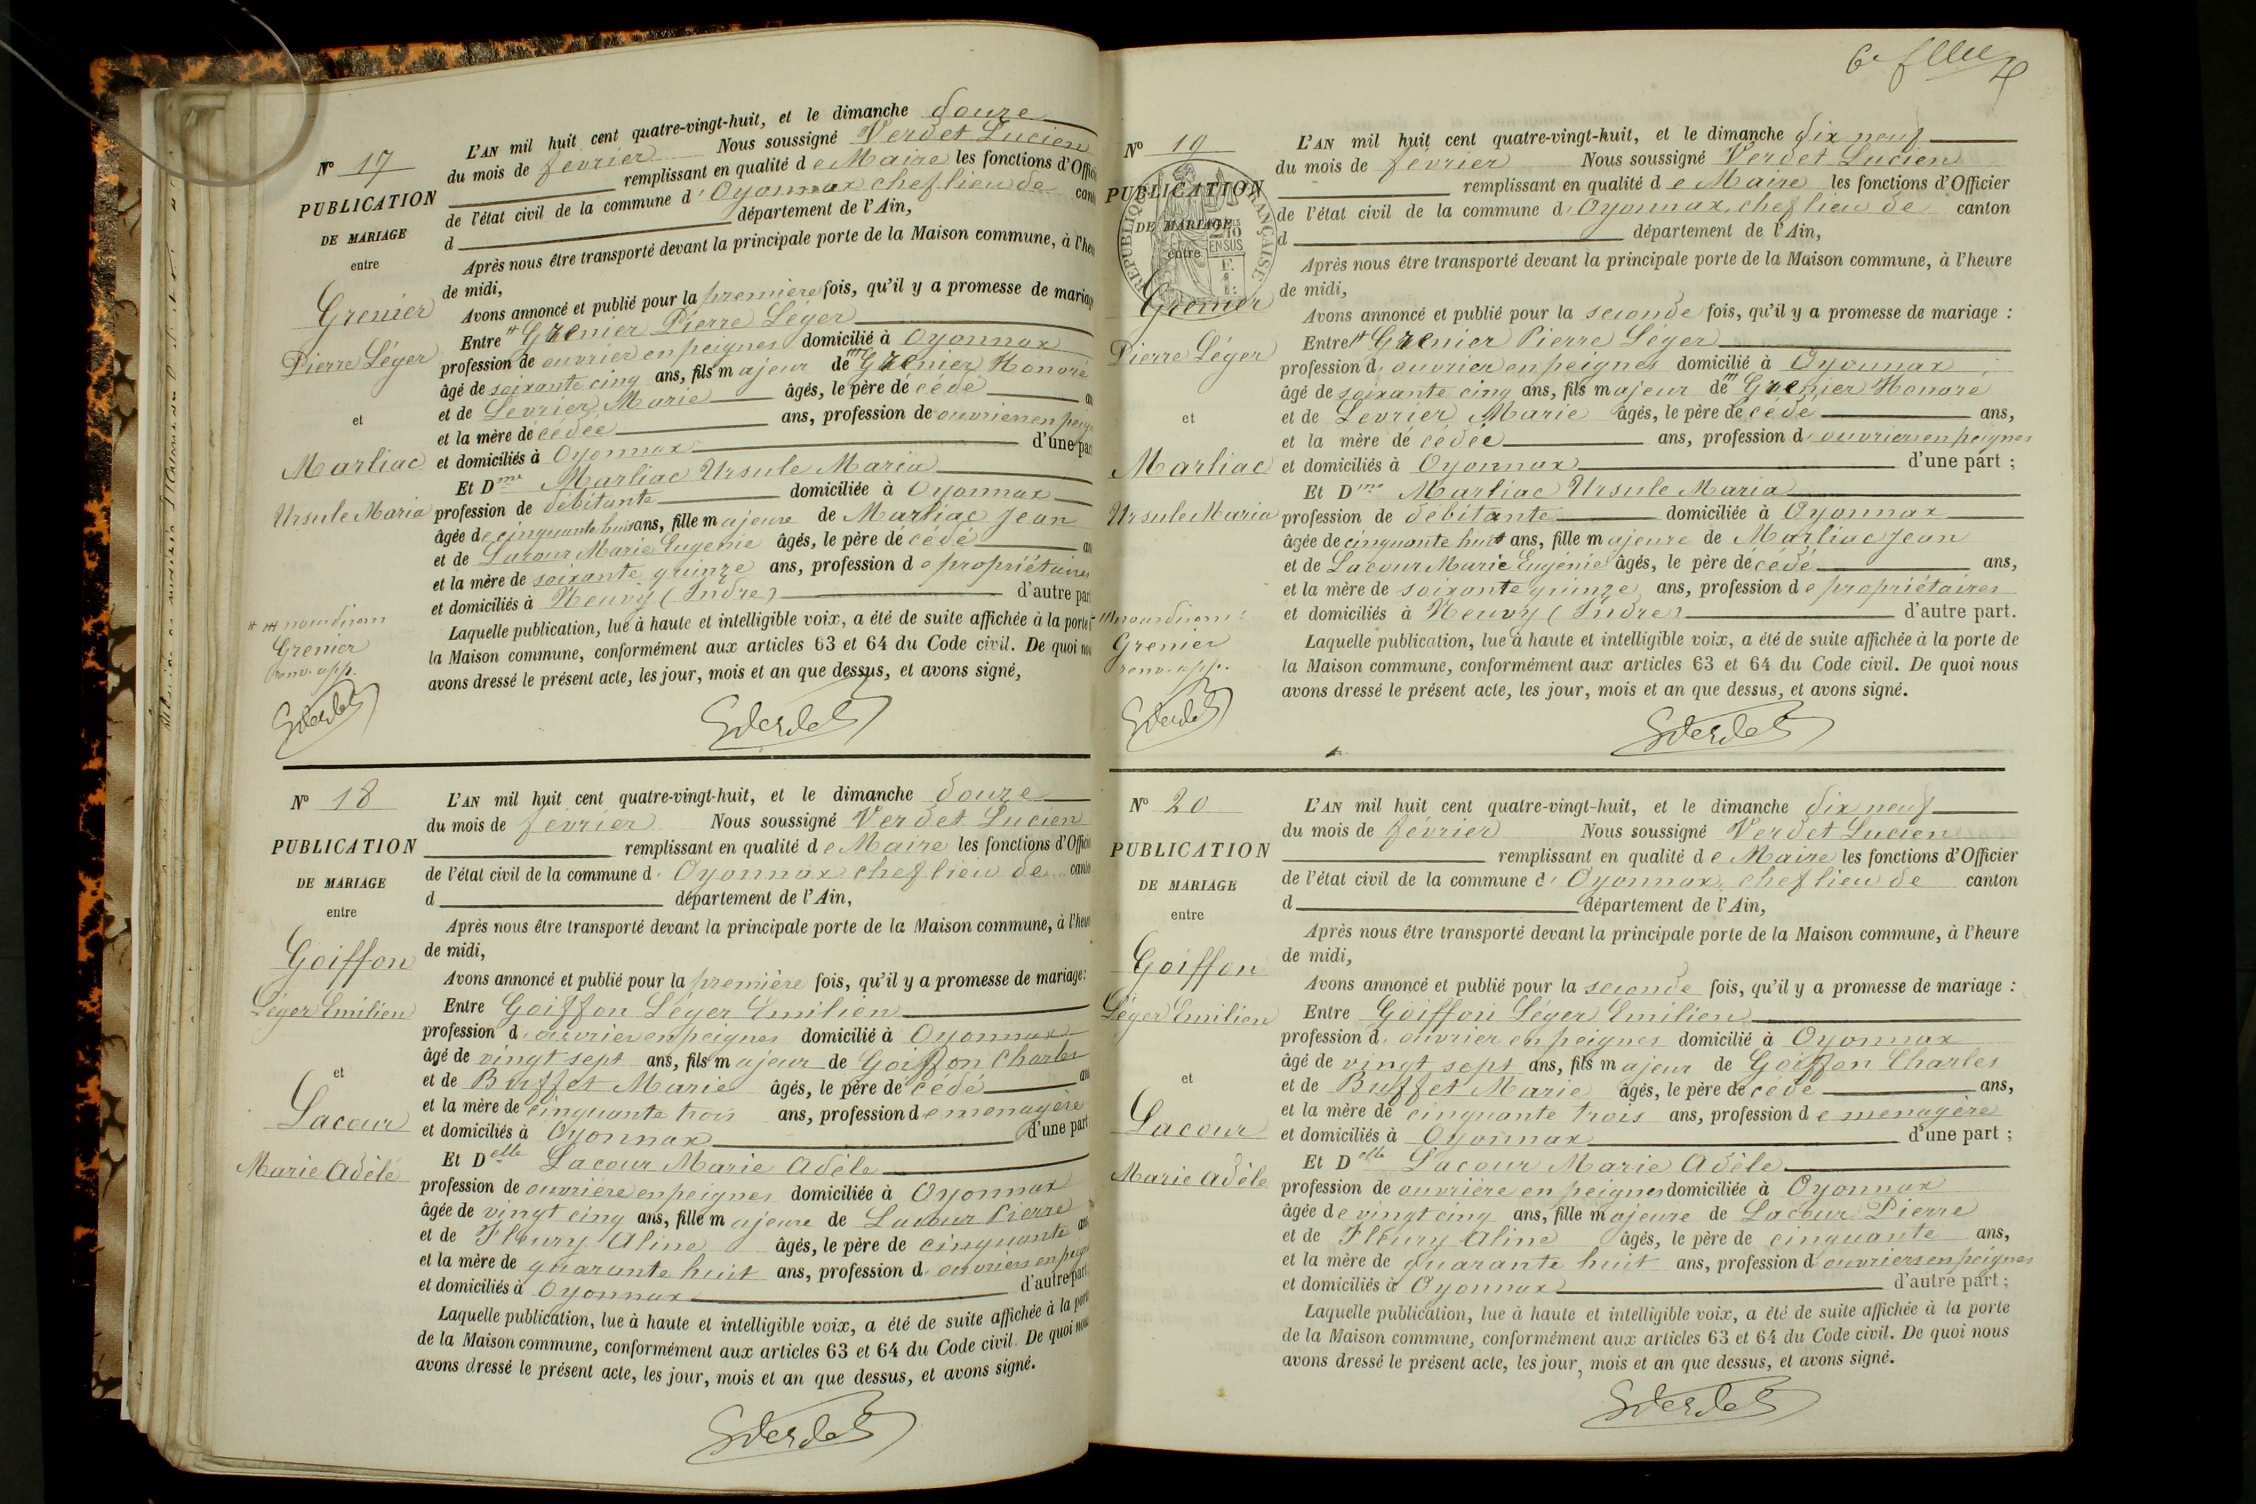 Nº 17
PUBLICATION
DE MARIAGE
entre
Grenier
Pierre Léger
et
Marliac
Ursule Maria
Grenier
L'AN mil huit cent quatre-vingt-huit, et le dimanche douze
du mois de février Nous soussigné Verdet Lucien
remplissant en qualité de Maire les fonctions d'Offici
de l'état civil de la commune d'Oyonnax chef lieu de cant
d département de l'Ain,
Après nous être transporté devant la principale porte de la Maison commune, à l'heu
de midi,
Avons annoncé et publié pour la première fois, qu'il y a promesse de mariag
Entre Grenier Pierre Léger
profession de ouvrier en peignes domicilié à Oyonnax
âgé de soixante cinq ans, fils majeur de Grenier Honoré
et de Levrier Marie âgés, le père décédé an
et la mère décédée ans, profession de ouvriers en peign
et domiciliés à Oyonnax d'une par
Et Dme Marliac Ursule Maria
profession de débitante domiciliée à Oyonnax
âgée de cinquante huit ans, fille majeure de Marliac Jean
et de Lacour Marie Eugénie âgés, le père décédé an
et la mère de soixante quinze ans, profession de propriétaires
et domiciliés à Neuvy (Indre) d'autre par
Laquelle publication, lue à haute et intelligible voix, a été de suite affichée à la porte
la Maison commune, conformément aux articles 63 et 64 du Code civil. De quoi nou
avons dressé le présent acte, les jour, mois et an que dessus, et avons signé,
Nº 18
PUBLICATION
DE MARIAGE
entre
Goiffon
Léger Emilien
et
Lacour
Marie Adèle
L'AN mil huit cent quatre-vingt-huit, et le dimanche douze
du mois de février Nous soussigné Verdet Lucien
remplissant en qualité de Maire les fonctions d'Offici
de l'état civil de la commune d'Oyonnax chef lieu de canto
d département de l'Ain,
Après nous être transporté devant la principale porte de la Maison commune, à l'heu
de midi,
Avons annoncé et publié pour la première fois, qu'il y a promesse de mariage:
Entre Goiffon Léger Emilien
profession d'ouvrier en peignes domicilié à Oyonnax
âgé de vingt sept ans, fils majeur de Goiffon Charles
et de Buffet Marie âgés, le père décédé an
et la mère de cinquante trois ans, profession de menagère
et domiciliés à Oyonnax d'une part
Et Delle Lacour Marie Adèle
profession de ouvrière en peignes domiciliée à Oyonnax
âgée de vingt cinq ans, fille majeure de Lacour Pierre
et de Fleury Aline âgés, le père de cinquante ans
et la mère de quarante huit ans, profession d'ouvriers en peign
et domiciliés à Oyonnax d'autre part
Laquelle publication, lue à haute et intelligible voix, a été de suite affichée à la porte
de la Maison commune, conformément aux articles 63 et 64 du Code civil. De quoi nou
avons dressé le présent acte, les jour, mois et an que dessus, et avons signé.
Nº 19
PUBLICATION
DE MARIAGE
entre
RÉPUBLIQUE FRANÇAISE
Grenier
Pierre Léger
et
Marliac
Ursule Maria
Grenier
L'AN mil huit cent quatre-vingt-huit, et le dimanche dix neuf
du mois de février Nous soussigné Verdet Lucien
remplissant en qualité de Maire les fonctions d'Officier
de l'état civil de la commune d'Oyonnax, chef lieu de canton
d département de l'Ain,
Après nous être transporté devant la principale porte de la Maison commune, à l'heure
de midi,
Avons annoncé et publié pour la seconde fois, qu'il y a promesse de mariage :
Entre Grenier Pierre Léger
profession d'ouvrier en peignes domicilié à Oyonnax
âgé de soixante cinq ans, fils majeur de Grenier Honoré
et de Levrier Marie âgés, le père décédé ans,
et la mère décédée ans, profession d'ouvriers en peignes
et domiciliés à Oyonnax d'une part ;
Et Dme Marliac Ursule Maria
profession de débitante domiciliée à Oyonnax
âgée de cinquante huit ans, fille majeure de Marliac Jean
et de Lacour Marie Eugénie âgés, le père décédé ans,
et la mère de soixante quinze ans, profession de propriétaires
et domiciliés à Neuvy (Indre) d'autre part.
Laquelle publication, lue à haute et intelligible voix, a été de suite affichée à la porte de
la Maison commune, conformément aux articles 63 et 64 du Code civil. De quoi nous
avons dressé le présent acte, les jour, mois et an que dessus, et avons signé.
Nº 20
PUBLICATION
DE MARIAGE
entre
Goiffon
Léger Emilien
et
Lacour
Marie Adèle
L'AN mil huit cent quatre-vingt-huit, et le dimanche dix neuf
du mois de février Nous soussigné Verdet Lucien
remplissant en qualité de Maire les fonctions d'Officier
de l'état civil de la commune d'Oyonnax, chef lieu de canton
d département de l'Ain,
Après nous être transporté devant la principale porte de la Maison commune, à l'heure
de midi,
Avons annoncé et publié pour la seconde fois, qu'il y a promesse de mariage :
Entre Goiffon Léger Emilien
profession d'ouvrier en peignes domicilié à Oyonnax
âgé de vingt sept ans, fils majeur de Goiffon Charles
et de Buffet Marie âgés, le père décédé ans,
et la mère de cinquante trois ans, profession de menagère
et domiciliés à Oyonnax d'une part ;
Et Delle Lacour Marie Adèle
profession de ouvrière en peignes domiciliée à Oyonnax
âgée de vingt cinq ans, fille majeure de Lacour Pierre
et de Fleury Aline âgés, le père de cinquante ans,
et la mère de quarante huit ans, profession d'ouvriers en peignes
et domiciliés à Oyonnax d'autre part ;
Laquelle publication, lue à haute et intelligible voix, a été de suite affichée à la porte
de la Maison commune, conformément aux articles 63 et 64 du Code civil. De quoi nous
avons dressé le présent acte, les jour, mois et an que dessus, et avons signé.